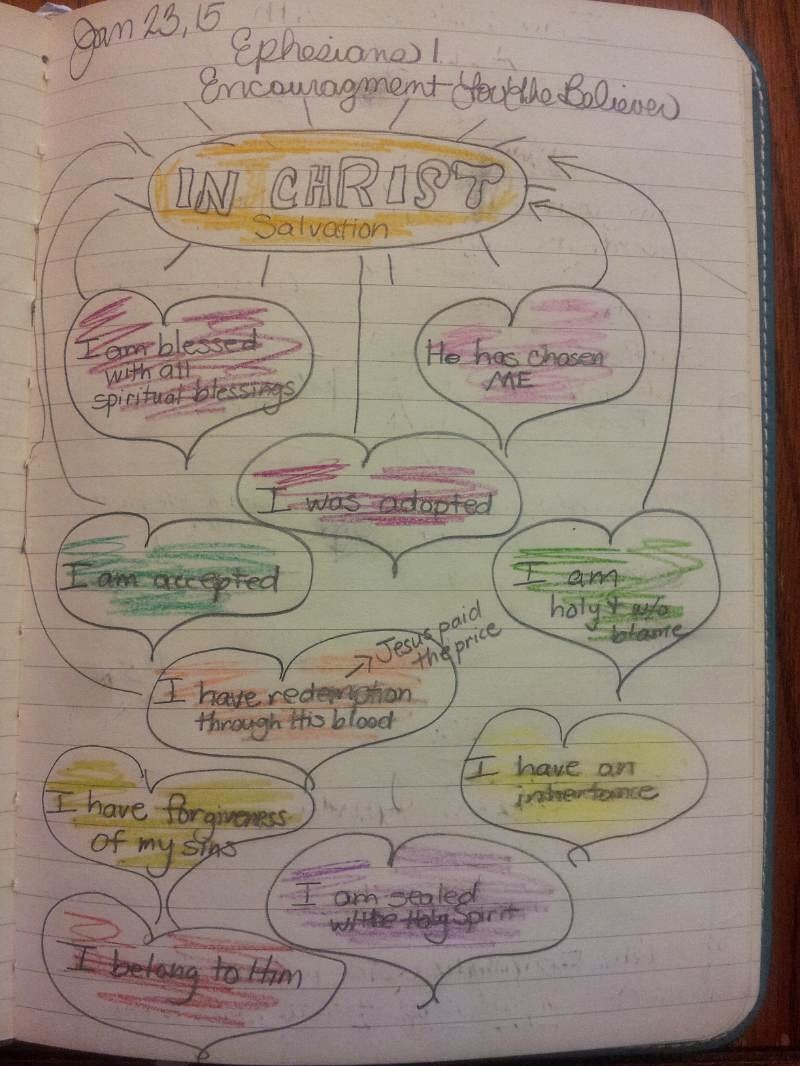 Jan 23, 15
Ephesians 1
Encouragment for the Believer
IN CHRIST
Salvation
I am blessed
with all
spiritual blessings
He has chosen
ME
I was adopted
I am accepted
I am
holy & w/o
blame
Jesus paid
the price
I have redemption
through His blood
I have an
inhertance
I have forgiveness
of my sins
I am sealed
w/the Holy Spirit
I belong to Him